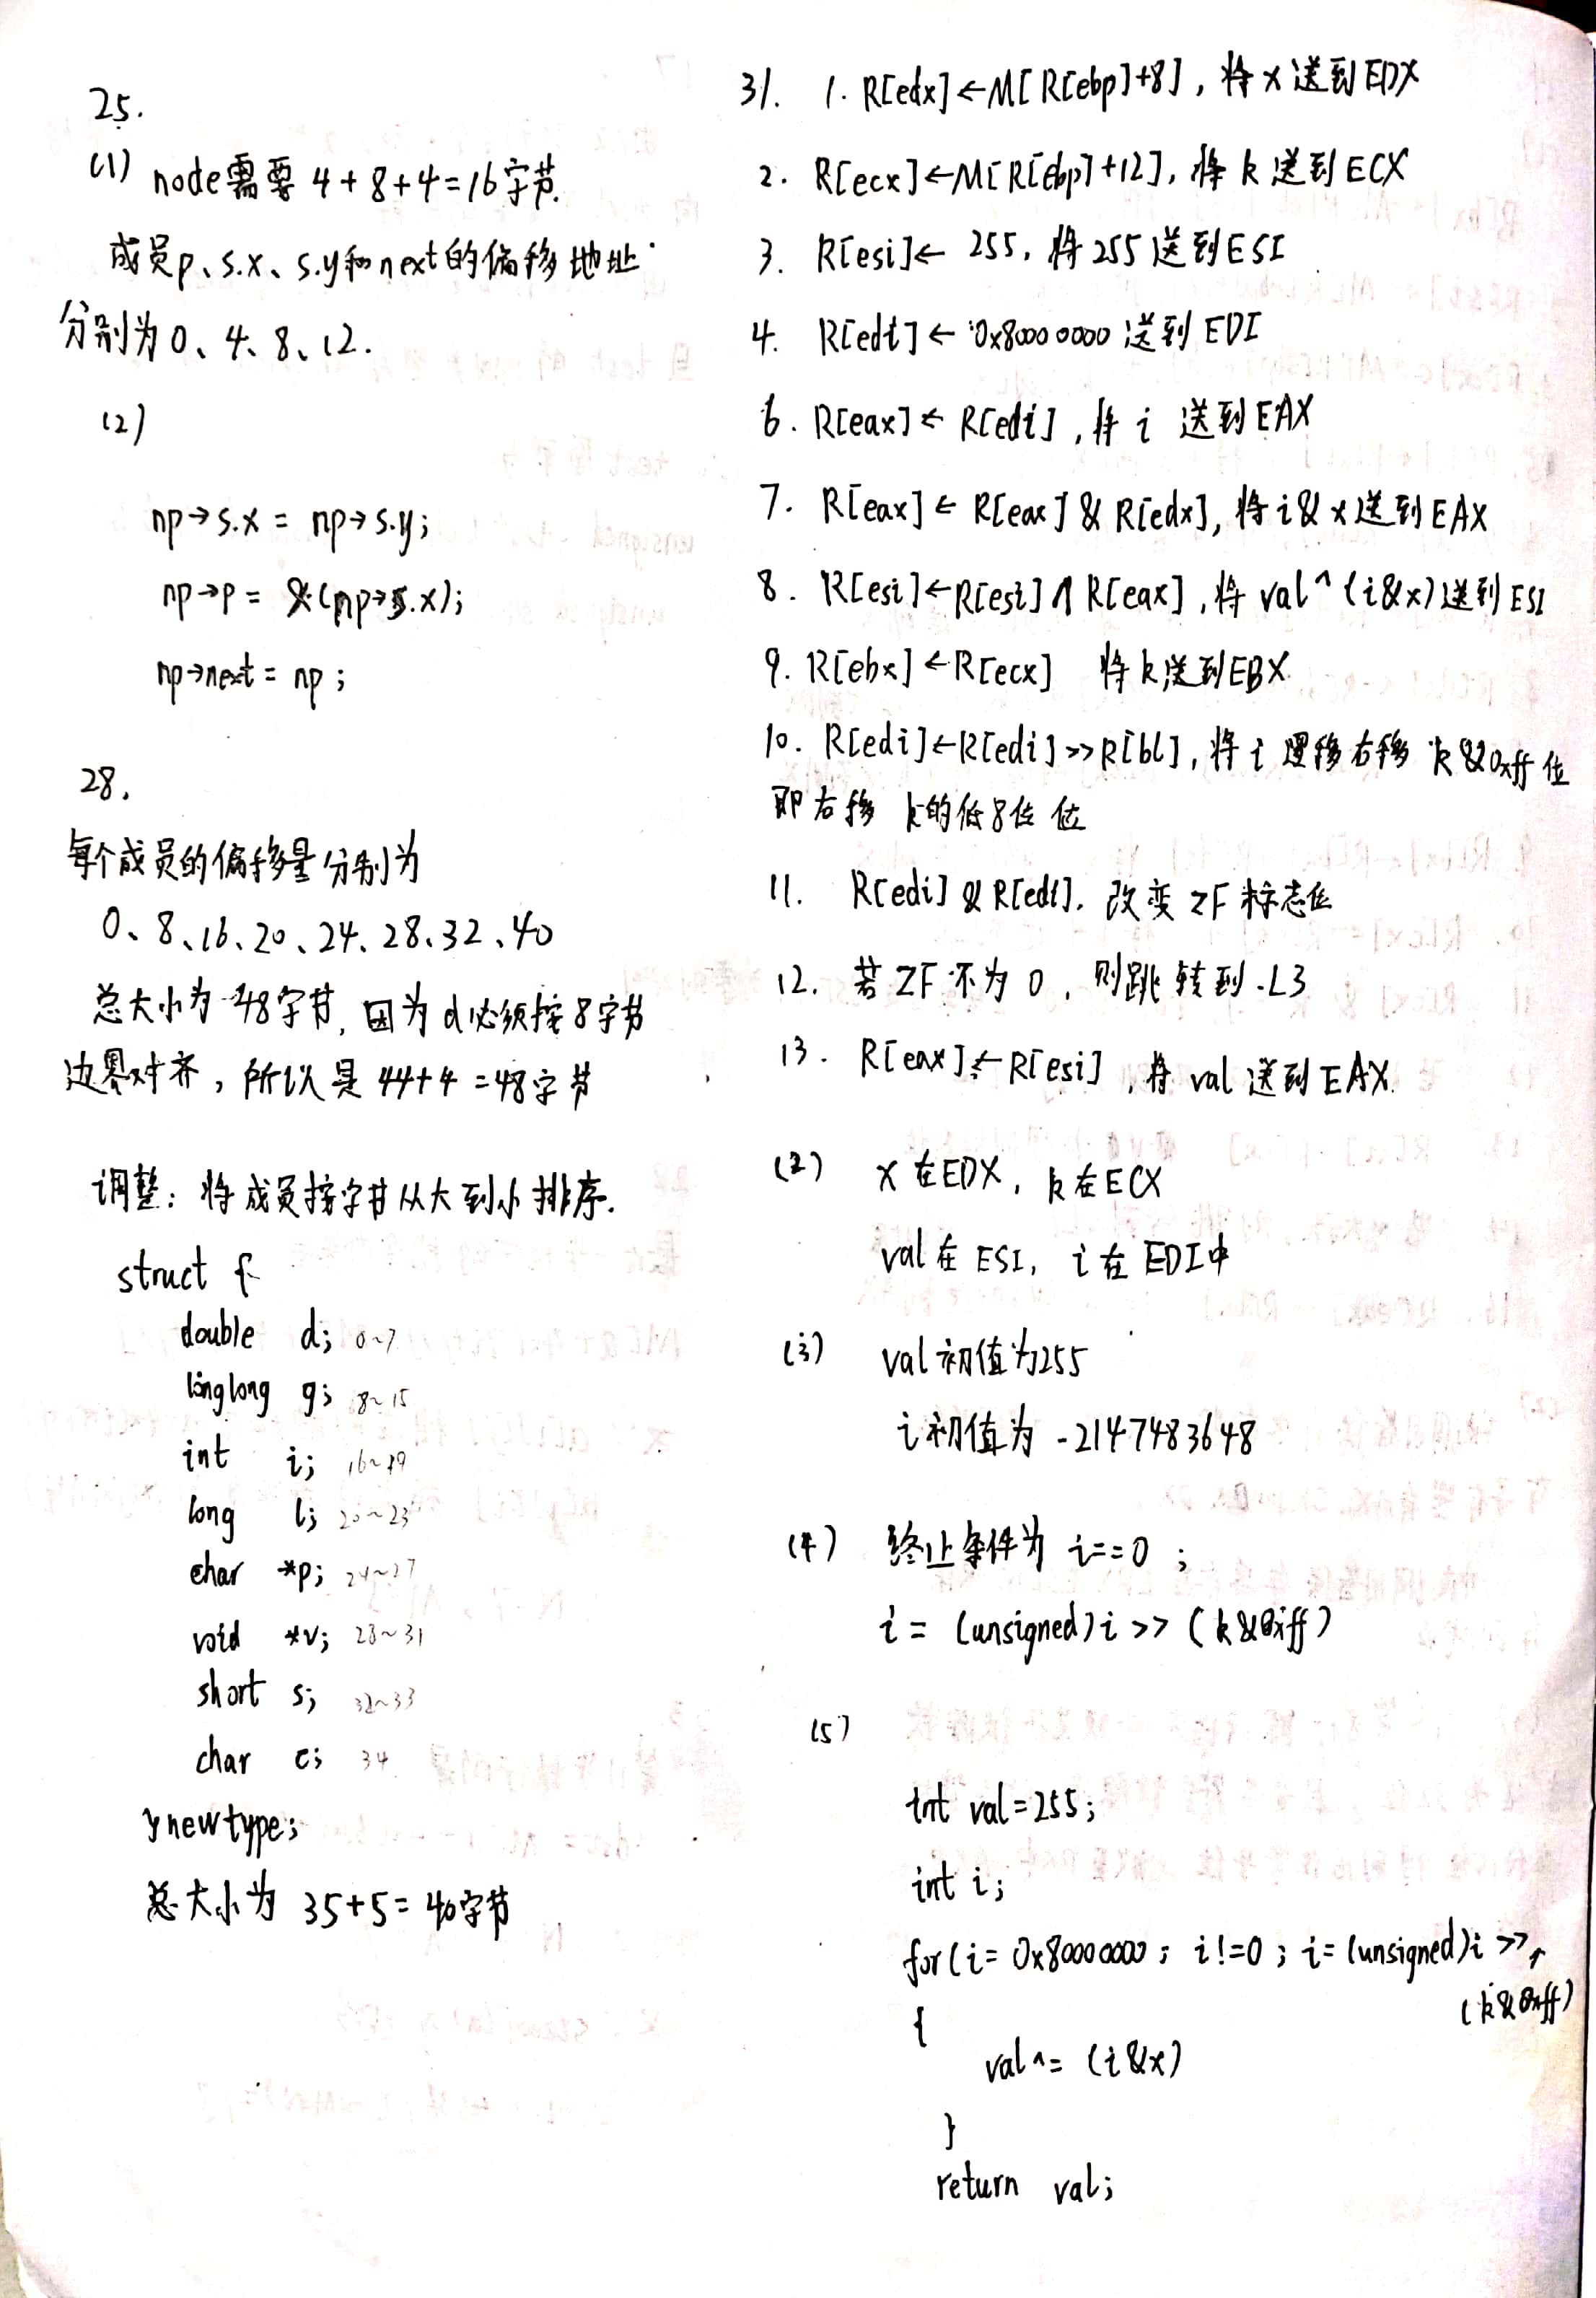 25.
(1) node需要 4+8+4=16字节.
成员p、s.x、s.y和next的偏移地址
分别为0、4、8、12.
(2)
np→s.x = np→s.y;
np→p = &(np→s.x);
np→next = np;
28.
每个成员的偏移量分别为
0、8、16、20、24、28、32、40
总大小为48字节,因为d必须按8字节
边界对齐,所以是44+4=48字节
调整:将成员按字节从大到小排序.
struct {
double d; 0~7
long long g; 8~15
int i; 16~19
long l; 20~23
char *p; 24~27
void *v; 28~31
short s; 32~33
char c; 34
} newtype;
总大小为 35+5=40字节
31. 1. R[edx]←M[R[ebp]+8], 将x送到EDX
2. R[ecx]←M[R[ebp]+12], 将k送到ECX
3. R[esi]← 255, 将255送到ESI
4. R[edi]← 0x80000000 送到EDI
6. R[eax]← R[edi], 将 i 送到EAX
7. R[eax]← R[eax] & R[edx], 将i&x送到EAX
8. R[esi]←R[esi] ∧ R[eax], 将 val^(i&x)送到ESI
9. R[ebx]←R[ecx] 将k送到EBX
10. R[edi]←R[edi]>>R[bl], 将i逻移右移 k&0xff位
即右移 k的低8位 位
11. R[edi] & R[edi]. 改变ZF标志位
12. 若ZF不为0, 则跳转到.L3
13. R[eax]←R[esi], 将 val 送到EAX.
(2) x在EDX, k在ECX
val在ESI, i在EDI中
(3) val初值为255
i初值为 -2147483648
(4) 终止条件为 i==0 ;
i = (unsigned)i >> (k&0xff)
(5)
int val=255;
int i;
for(i= 0x80000000; i!=0; i=(unsigned)i >>
(k&0xff)
{
val^= (i&x)
}
return val;